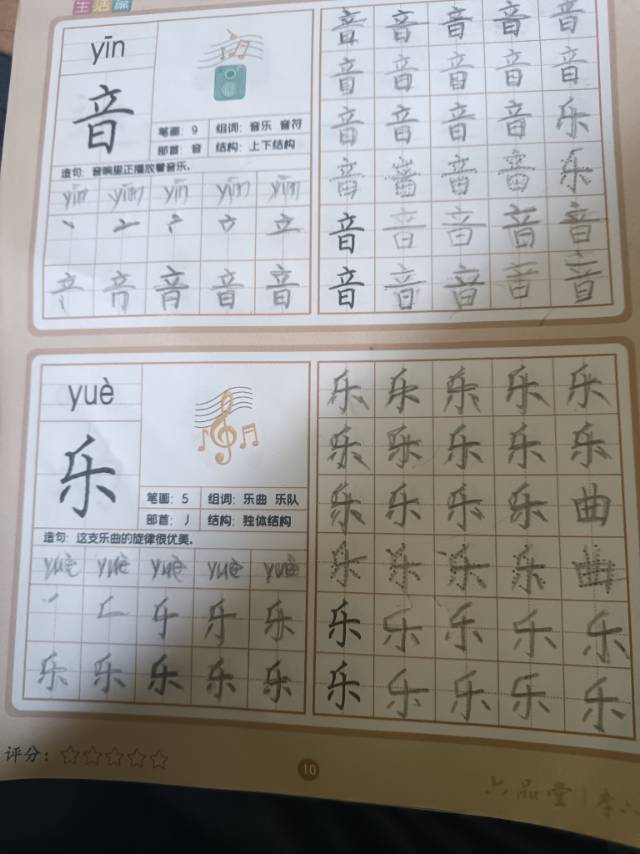 生活篇
yīn
音
笔画：9 组词：音乐 音符
部首：音 结构：上下结构
造句：音响里正播放着音乐。
yīn yīn yīn yīn yīn
音 音 音 音 音
音 音 音 音 音
音 音 音 音 乐
音 音 音 音 乐
音 音 音 音 音
音 音 音 音 音
yuè
乐
笔画：5 组词：乐曲 乐队
部首：丿 结构：独体结构
造句：这支乐曲的旋律很优美。
yuè yuè yuè yuè yuè
乐 乐 乐 乐 乐
乐 乐 乐 乐 乐
乐 乐 乐 乐 乐
乐 乐 乐 乐 曲
乐 乐 乐 乐 曲
乐 乐 乐 乐 乐
乐 乐 乐 乐 乐
评分：
10
六品堂